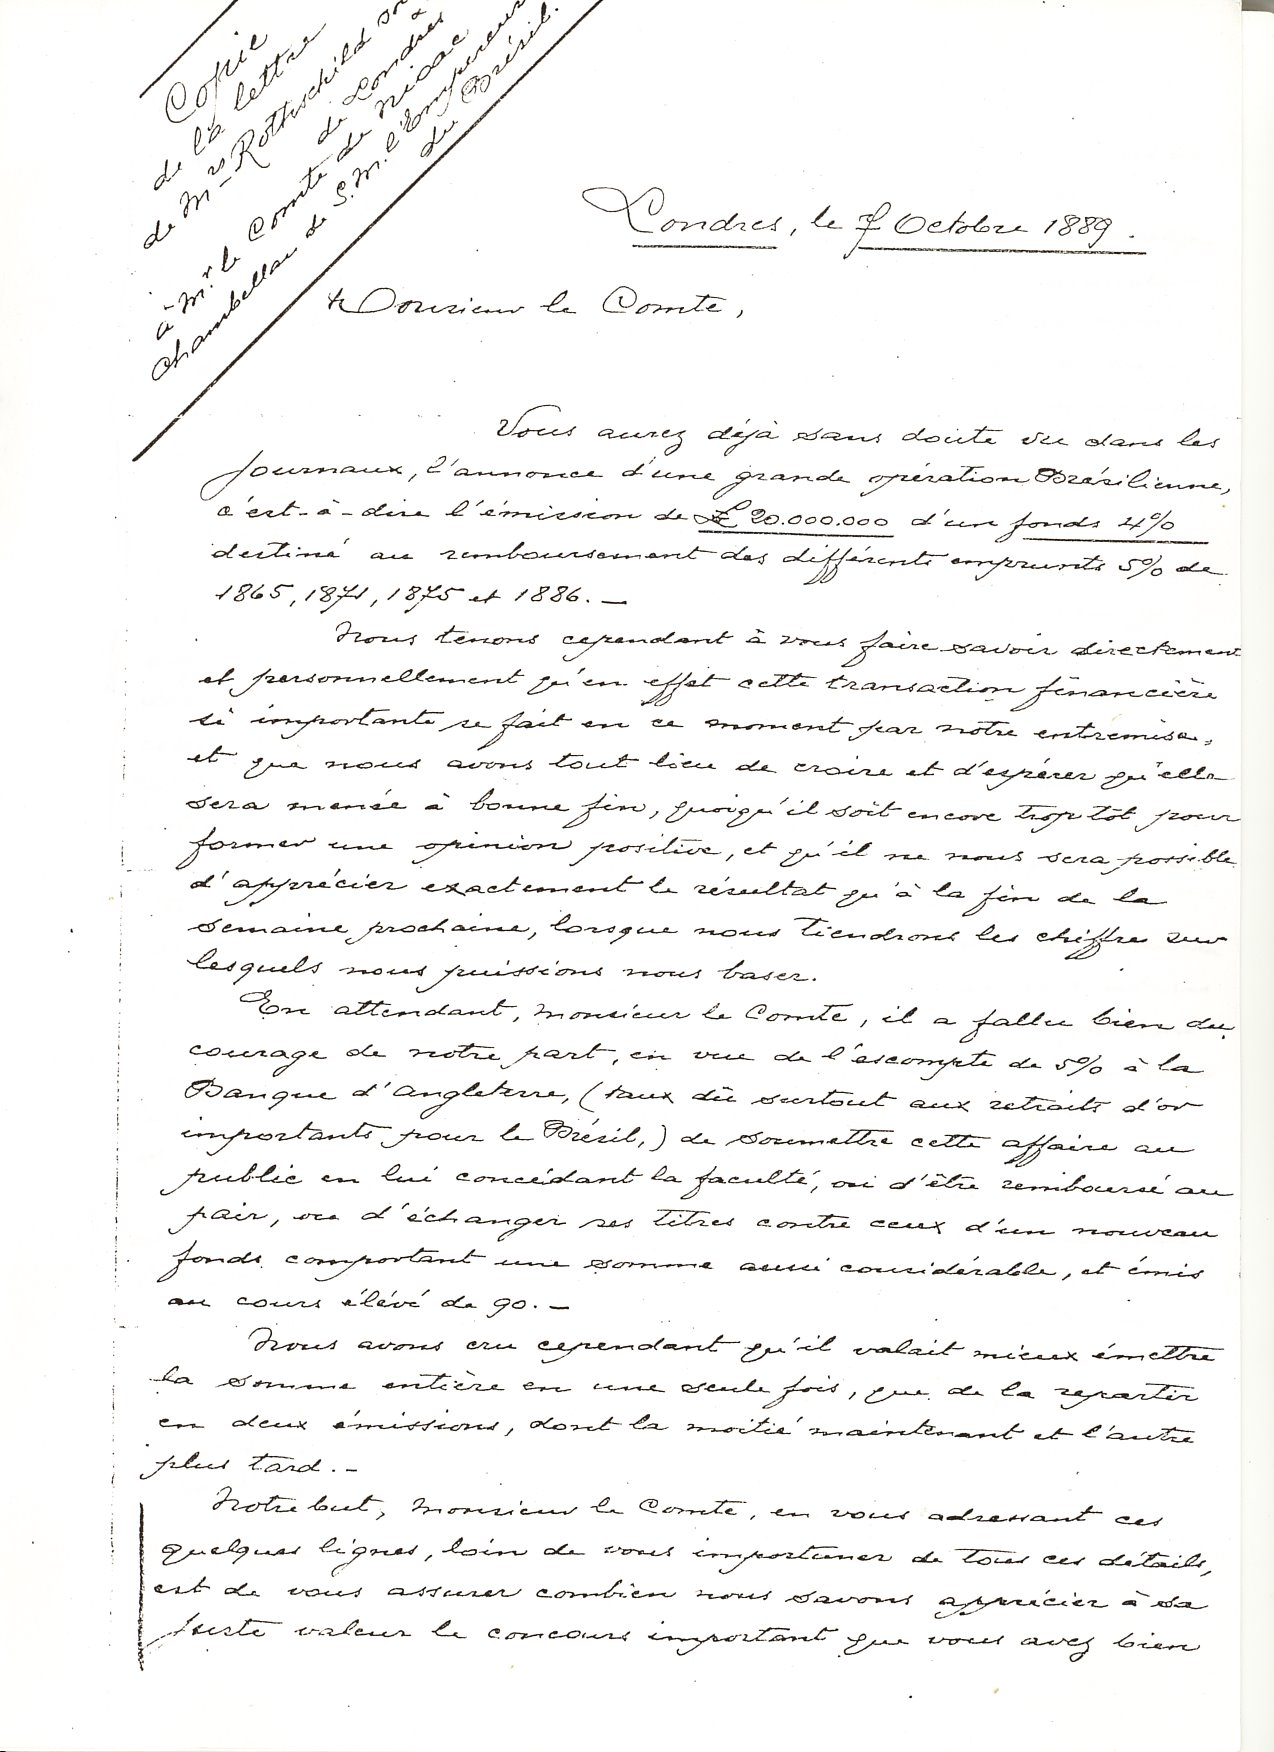 Copie
de la lettre
de Mrs Rothschild
de Londres
à Mr. le Comte de Nioac
Chambellan de S. M. l'Empereur
du Brésil.
Londres, le 7 Octobre 1889.
Monsieur le Comte,
Vous aurez déjà sans doute vu dans les
journaux, l'annonce d'une grande opération Brésilienne,
c'est-à-dire l'émission de £ 20.000.000 d'un fonds 4%
destiné au remboursement des différents emprunts 5% de
1865, 1871, 1875 et 1886. —
Nous tenons cependant à vous faire savoir directement
et personnellement qu'en effet cette transaction financière
si importante se fait en ce moment par notre entremise,
et que nous avons tout lieu de croire et d'espérer qu'elle
sera menée à bonne fin, quoiqu'il soit encore trop tôt pour
former une opinion positive, et qu'il ne nous sera possible
d'apprécier exactement le résultat qu'à la fin de la
semaine prochaine, lorsque nous tiendrons les chiffres sur
lesquels nous puissions nous baser.
En attendant, Monsieur le Comte, il a fallu bien du
courage de notre part, en vue de l'escompte de 5% à la
Banque d'Angleterre, (taux dû surtout aux retraits d'or
importants pour le Brésil,) de soumettre cette affaire au
public en lui concédant la faculté, ou d'être remboursé au
pair, ou d'échanger ses titres contre ceux d'un nouveau
fonds comportant une somme aussi considérable, et émis
au cours élévé de 90. —
Nous avons cru cependant qu'il valait mieux émettre
la somme entière en une seule fois, que de la repartir
en deux émissions, dont la moitié maintenant et l'autre
plus tard. —
Notre but, Monsieur le Comte, en vous adressant ces
quelques lignes, loin de vous importuner de tous ces détails,
est de vous assurer combien nous savons apprécier à sa
juste valeur le concours important que vous avez bien